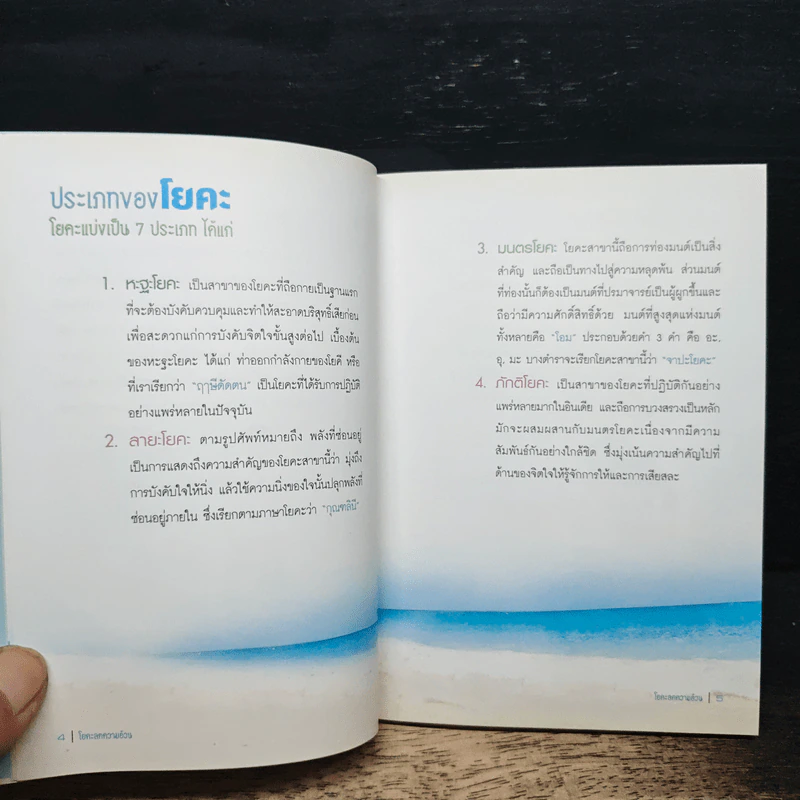 ประเภทของโยคะ
โยคะแบ่งเป็น 7 ประเภท ได้แก่
1. หะฐะโยคะ เป็นสาขาของโยคะที่ถือกายเป็นฐานแรก
ที่จะต้องบังคับควบคุมและทำให้สะอาดบริสุทธิ์เสียก่อน
เพื่อสะดวกแก่การบังคับจิตใจขั้นสูงต่อไป เบื้องต้น
ของหะฐะโยคะ ได้แก่ ท่าออกกำลังกายของโยคี หรือ
ที่เราเรียกว่า "ฤๅษีดัดตน" เป็นโยคะที่ได้รับการปฏิบัติ
อย่างแพร่หลายในปัจจุบัน
2. ลายะโยคะ ตามรูปศัพท์หมายถึง พลังที่ซ่อนอยู่
เป็นการแสดงถึงความสำคัญของโยคะสาขานี้ว่า มุ่งถึง
การบังคับใจให้นิ่ง แล้วใช้ความนิ่งของใจนั้นปลุกพลังที่
ซ่อนอยู่ภายใน ซึ่งเรียกตามภาษาโยคะว่า "กุณฑลินี"
4 | โยคะลดความอ้วน
3. มนตรโยคะ โยคะสาขานี้ถือการท่องมนต์เป็นสิ่ง
สำคัญ และถือเป็นทางไปสู่ความหลุดพ้น ส่วนมนต์
ที่ท่องนั้นก็ต้องเป็นมนต์ที่ปรมาจารย์เป็นผู้ผูกขึ้นและ
ถือว่ามีความศักดิ์สิทธิ์ด้วย มนต์ที่สูงสุดแห่งมนต์
ทั้งหลายคือ "โอม" ประกอบด้วยคำ 3 คำ คือ อะ,
อุ, มะ บางตำราจะเรียกโยคะสาขานี้ว่า "จาปะโยคะ"
4. ภักติโยคะ เป็นสาขาของโยคะที่ปฏิบัติกันอย่าง
แพร่หลายมากในอินเดีย และถือการบวงสรวงเป็นหลัก
มักจะผสมผสานกับมนตรโยคะเนื่องจากมีความ
สัมพันธ์กันอย่างใกล้ชิด ซึ่งมุ่งเน้นความสำคัญไปที่
ด้านของจิตใจให้รู้จักการให้และการเสียสละ
โยคะลดความอ้วน | 5